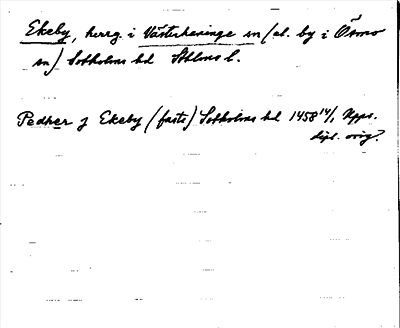 Ekeby, herrg. i Västerhaninge sn (el. by i Ösmo
sn) Sotholms hd Sthlms l.
Pedher j Ekeby (faste) Sotholms hd 1458 14/1 Upps.
dipl. orig.